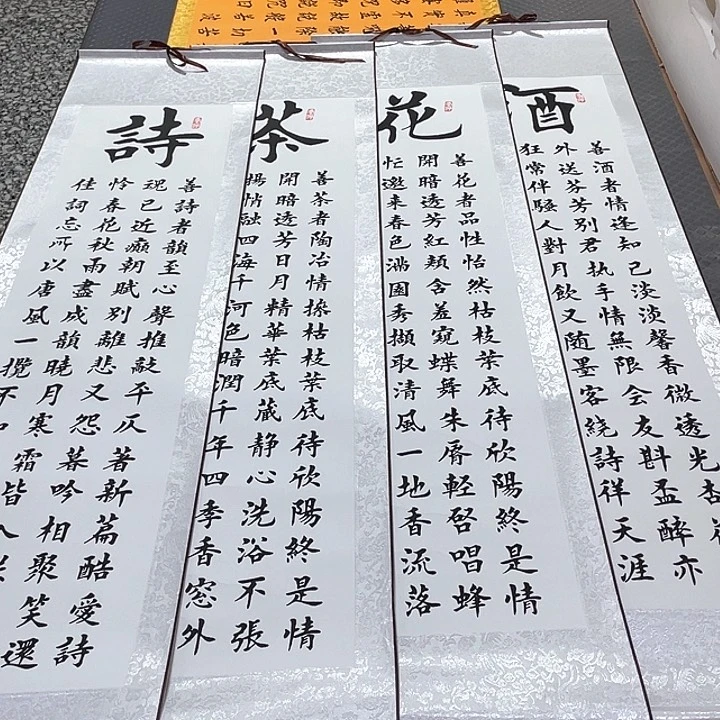 酒
善酒者情逢知己淡淡馨香微透光杏
外送芬芳別君执手情無限会友斟盃醉亦
狂常伴騷人對月飲又随墨客繞詩祥天涯
花
善花者品性怡然枯枝葉底待欣陽終是情
開暗透芳紅頰含羞窺蝶舞朱脣輕啓唱蜂
忙邀来春色滿園秀擷取清風一地香流落
茶
善茶者陶冶情操枯枝葉底待欣陽終是情
開暗透芳日月精華葉底蔵静心洗浴不張
揚情融四海千河色暗潤千年四季香窓外
詩
善詩者韻至心聲推敲平仄著新篇酷愛詩
魂已近癲朝賦別離悲又怨暮吟相聚笑還
怜春花秋雨盡成韻曉月寒霜皆入
佳詞忘所以唐風一攬不